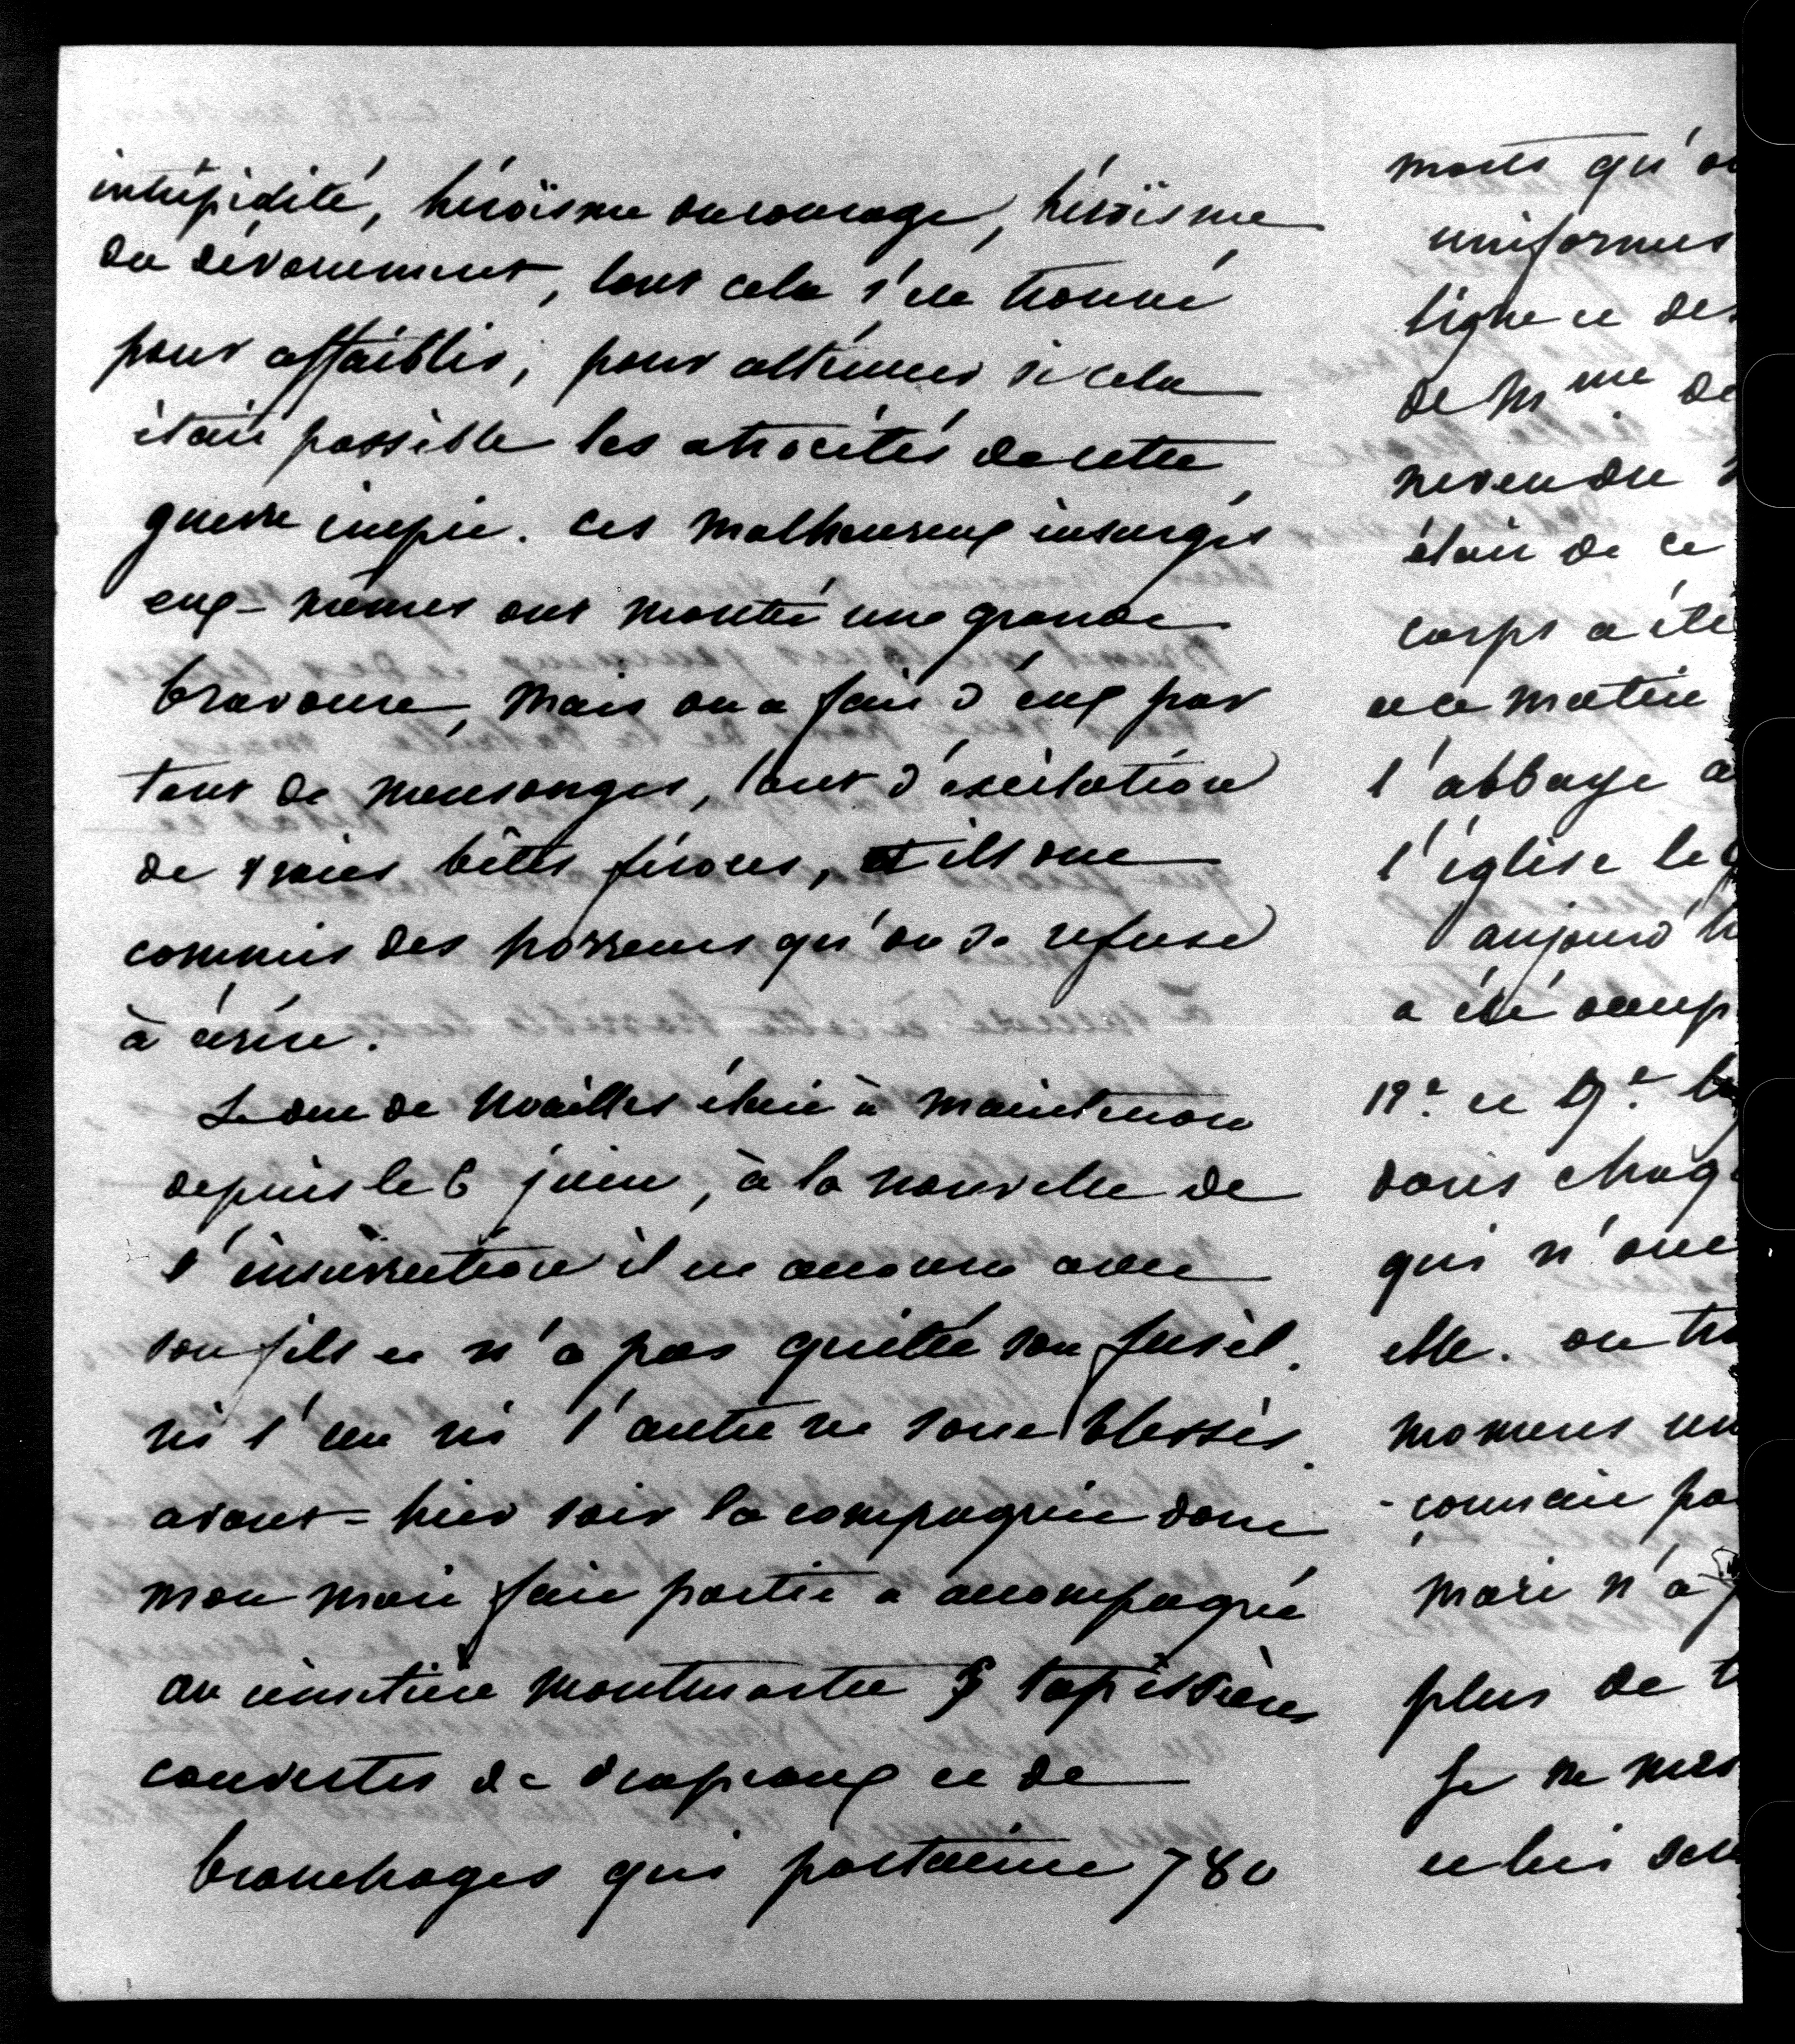 intrépidité, héroïsme du courage, héroïsme
du dévouement, tout cela s'est trouvé
pour affaiblir, pour atténuer si cela
était possible les atrocités de cette
guerre impie. ces malheureux insurgés
eux-mêmes ont montré une grande
bravoure, mais on a fait d'eux par
tant de mensonges, tant d'excitation
de vraies bêtes féroces, et ils ont
commis des horreurs qu'on se refuse
à écrire.
Le duc de Noailles était à Maintenon
depuis le 6 juin, à la nouvelle de
l'insurrection il est accouru avec
son fils et n'a pas quitté son fusil.
ni l'un ni l'autre ne sont blessés.
avant-hier soir la compagnie dont
mon mari fait partie a accompagné
au cimetière Montmartre tapissières
couvertes de drapeaux et de
branchages qui portaient 780
morts qu'o
uniformes
ligne et des
de Mme de
neveu du
était de ce
corps a été
et ce matin
l'abbaye a
l'église le
aujourd'h
a été occup
12e et 9e
dans chaq
qui n'ont
elle. on tr
momens un
connait pa
mari n'a p
plus de t
Je ne me
et lui